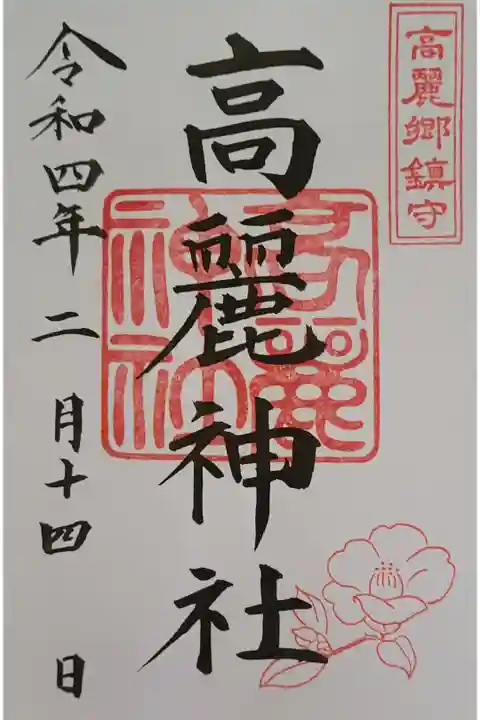 高麗郷鎮守
高麗神社
高麗神社
令和四年二月十四日